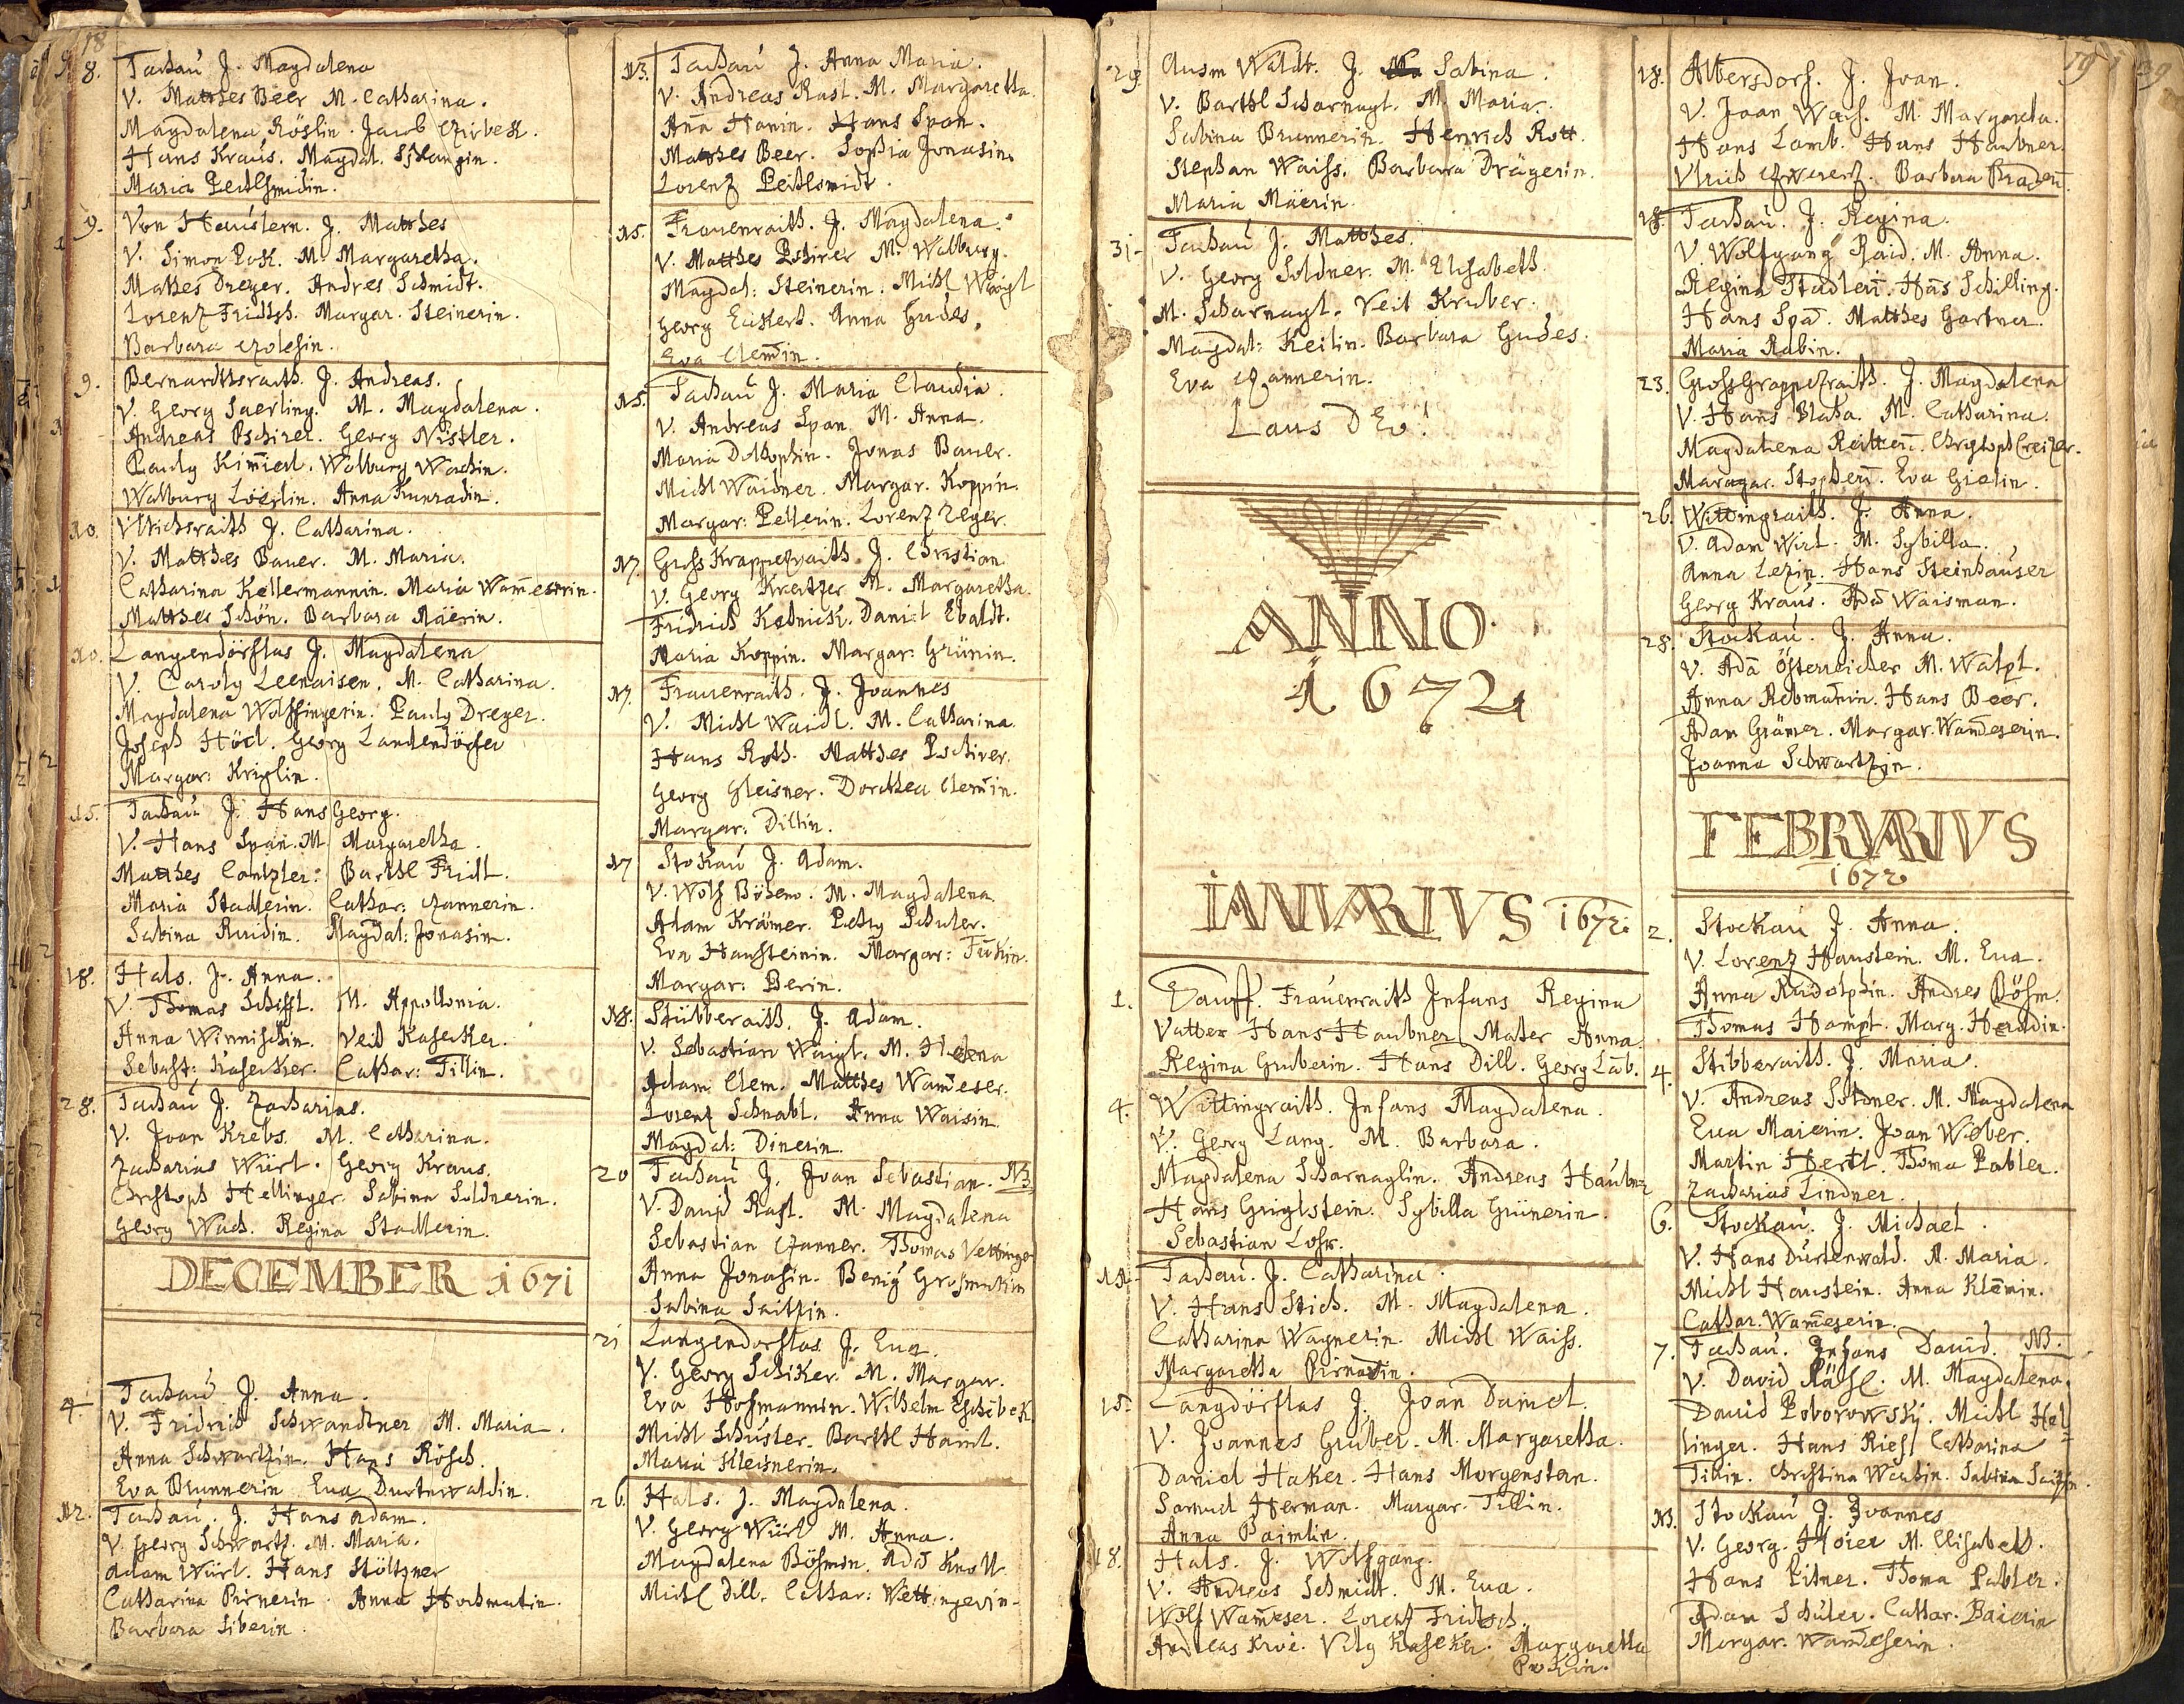 18
8. Tachau J. Magdalena
V. Matthes Beer M. Catharina.
Magdalena Röslin. Jacob
Hans Kraus. Magdal.
Maria
9. Von Haustern. J. Matthes
V. Simon Pok. M. Margaretha.
Mattes Dreyer. Andres Schmidt.
Lorenz Fridtsh. Margar. Steinerin.
Barbara
9. Bernardtsraith. J. Andreas.
V. Georg Saerling. M. Magdalena.
Andreas Pschirer. Georg Nistler.
Pauly Kim̄erl. Walburg Wachin.
Walburg Löerlin. Anna Kunradin.
10. Vlrichsraith J. Catharina.
V. Matthes Bauer. M. Maria.
Catharina Kellermannin. Maria Wam̄eserin.
Matthes Schön. Barbara Mäerin.
10. Langendörflas J. Magdalena
V. Caroly Leenaisen. M. Catharina.
Magdalena Wolffingerin. Pauly Dreyer.
Joseph Höcl. Georg Landendörfer
Margar: Kriglin.
15. Tachau J. Hans Georg.
V. Hans Span. M. Margaretha.
Matthes Cantzler: Barthl Fridl.
Maria Stadlerin. Cathar: Czannerin.
Sabina Ruidin. Magdal: Jonasin.
18. Hals. J. Anna.
V. Thomas Schiffl. M. Appollonia.
Anna Winnischin. Veid Kaserker.
Sebast: Kaserker. Cathar: Tillin.
28. Tachau J. Zacharias.
V. Joan Krebs. M. Catharina.
Zacharias Würt. Georg Kraus.
Christoph Hellinger. Sabina Soldnerin.
Georg Wach. Regina Stadlerin.
DECEMBER 1671
4. Tachau J. Anna.
V. Fridrich Schwandtner M. Maria.
Anna Schwartzin. Hans Rösch.
Eva Brunnerin Eua Durtnwaldin.
12. Tachau. J. Hans Adam.
V. Georg Schwartz. M. Maria.
Adam Würt. Hans Stöltzner
Catharina Pirnerin. Anna Hochmutin.
Barbara Siberin.
13. Tachau J. Anna Maria.
V. Andreas Rast. M. Margaretha.
Anna Hanin. Hans Span.
Matthes Beer. Sophia Jonasin.
Lorenz
15. Frauenraith. J. Magdalena.
V. Matthes Pschirer M. Walburg.
Magdal: Steinerin. Michl Waigl
Georg Eickert. Anna Gudes.
Eva Clem̄in.
15. Tachau J. Maria Claudia.
V. Andreas Span. M. Anna.
Maria Dolhophin. Jonas Bauer.
Michl Waidner. Margar. Koppin.
Margar: Pellerin. Lorenz Zeger.
17. Gross Krappetzraith. J. Christian
V. Georg Kreitzer M. Margaretha.
Fridrich Kobnick. Daniel Ebaldt.
Maria Koppin. Margar: Grünin.
17. Frauenraith. J. Joannes
V. Michl Waidl. M. Catharina
Hans Roth. Matthes Pschirer.
Georg Gleisner. Dorothea Clem̄in.
Margar: Dillin.
17 Stokau J. Adam.
V. Wolf Böhem. M. Magdalena
Adam Krämer. Pschuler.
Eva Hansteinin. Margar:
Margar: Berin.
18. Stübberaith. J. Adam.
V. Sebastian Waigt. M. Helena
Adam Clem. Matthes Wam̄eser.
Lorenz Schnabl. Anna Waisin
Magdal: Dinerin.
20 Tachau J. Joan Sebastian. NB
V. Dauid Rasl. M. Magdalena
Sebastian Czanner. Thomas Vettinger
Anna Jonasin. Benig
Sabina Saitzin.
21 Langendorflas J. Eua.
V. Georg Schiker. M. Margar.
Eva Hofmannin. Wilhelm
Michl Schuster. Barthl Haml.
Maria Kleisnerin.
26. Hals. J. Magdalena.
V. Georg Würt M. Anna.
Magdalena Böhmin. Adā Knoll.
Michl Dill. Cathar: Vettingerin.
29. Ausm Waldt. J. Sabina.
V. Barthl Scharnagl. M. Maria.
Sabina Brunnerin. Henrich Rott.
Stephan Waiss. Barbara Drägerin.
Maria Mäerin.
31. Tachau J. Matthes.
V. Georg Soldner. M. Elisabeth.
M. Scharnagl. Veit Kruber.
Magdal: Keilin. Barbara Gudes.
Eva Czannerin.
Laus DEO!
ANNO
1672
IANVARIVS 1672.
1. Tauff. Frauenraith Infans Regina
Vatter Hans Haubner Mater Anna.
Regina Gruberin. Hans Dill. Georg Lāb.
4. Wittingraith. Infans Magdalena.
V. Georg Lang. M. Barbara.
Magdalena Scharnaglin. Andreas Haubner
Hans Griglstein. Sybilla Grünerin.
Sebastian Lohr.
12. Tachau. J. Catharina.
V. Hans Stich. M. Magdalena.
Catharina Wagnerin. Michl Waiss.
Margaretha
15. Langdörflas J. Joan Daniel.
V. Joannes Gruber. M. Margaretha.
Daniel Haker. Hans Morgenstern.
Samuel Herman. Margar. Tillin.
Anna Paimlin.
18. Hals. J. Wolfgang.
V. Andreas Schmidt. M. Eua.
Wolf Wam̄eser. Lorenz Fridtsch.
Andreas Vity Kaseker. Margaretha
Pokin.
19
18. Albersdorf. J. Joan.
V. Joan Wach. M. Margareta.
Hans Lamb. Hans Haubner.
Vlrich Barbara
18. Tachau. J. Regina.
V. Wolfgang Raid. M. Anna.
Regina Stadlerī. Hās Schilling.
Hans Spā. Matthes Gartner.
Maria Rabin.
23. GrossGrappetzraith. J. Magdalena
V. Hans Blaha. M. Catharina.
Magdalena Reitterī. Christoph Creitzer.
Maragar. Stopferī. Eva Gielin.
26. Wittingraith. J. Anna.
V. Adam Wirt. M. Sybilla.
Anna Lezin. Hans Steinhauser
Georg Kraus. Adā Waisman.
28. Stockau. J. Anna.
V. Adā Österreicher M. Walpl.
Anna Rebmanin. Hans Beer.
Adam Grämer. Margar. Wam̄eserin.
Joanna Schwartzin.
FEBRVARIVS
1672
2. Stockau J. Anna.
V. Lorenz Haustein. M. Eua.
Anna Rudolphin. Andres Böhm.
Thomas Haupt. Marg.
4. Stibberaith. J. Maria.
V. Andreas Soldner. M. Magdalena
Eua Maierin. Joan Weber.
Martin Hertl. Thoma Pabler.
Zacharias Lindner.
6. Stockau. J. Michael.
V. Hans Durtenwald. M. Maria.
Michl Haustein. Anna Klem̄in.
Cathar. Wam̄eserin.
7. Tachau. Infans Dauid. NB.
V. David Räsl. M. Magdalena.
Dauid Poborowskj. Michl Hel=
linger. Hans Riesl Catharina
Tillin. Christina Wachin. Sabina Saitzin.
13. Stokau J. Joannes
V. Georg Hoier M. Elisabeth.
Hans Pitner. Thoma Pabler.
Adam Schuler. Cathar. Baierin
Margar. Wam̄eserin.